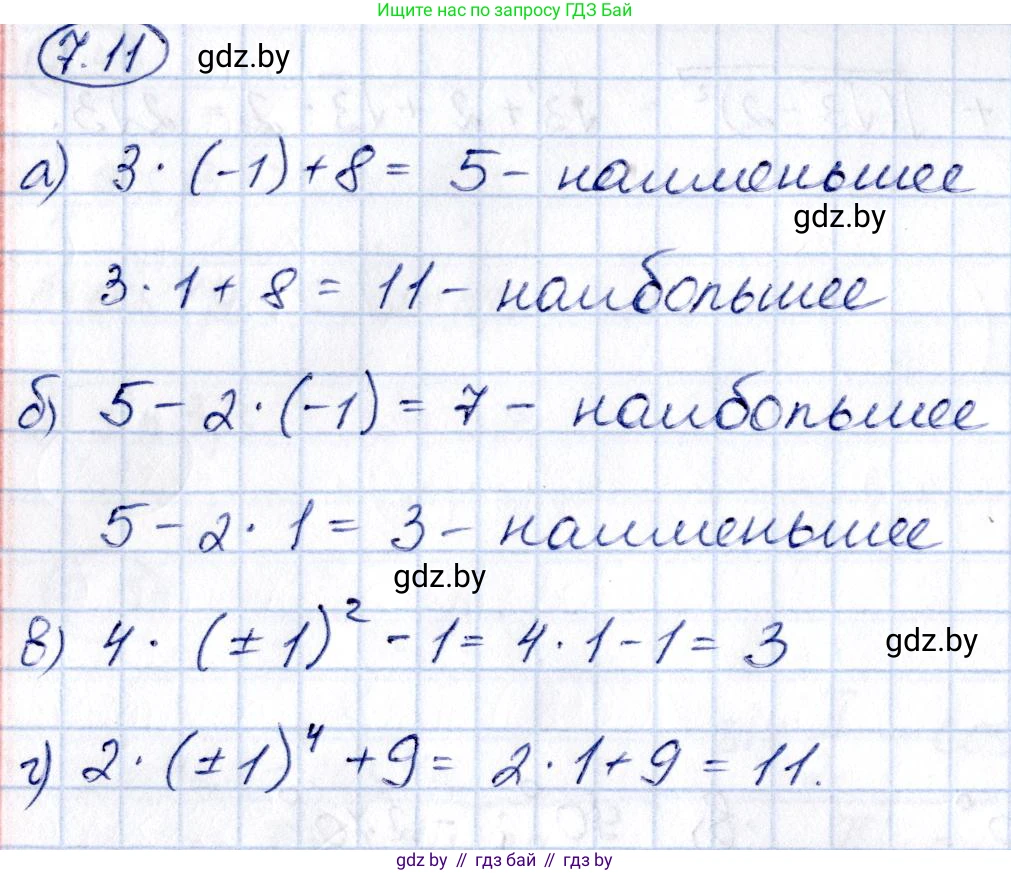 Ищите нас по запросу ГДЗ Бай
7.11 gdz.by
а) 3 · (-1) + 8 = 5 - наименьшее
gdz.by
3 · 1 + 8 = 11 - наибольшее
б) 5 - 2 · (-1) = 7 - наибольшее
5 - 2 · 1 = 3 - наименьшее
gdz.by
в) 4 · (± 1)² - 1 = 4 · 1 - 1 = 3 gdz.by
г) 2 · (± 1)⁴ + 9 = 2 · 1 + 9 = 11.
gdz.by // гдз бай // гдз by